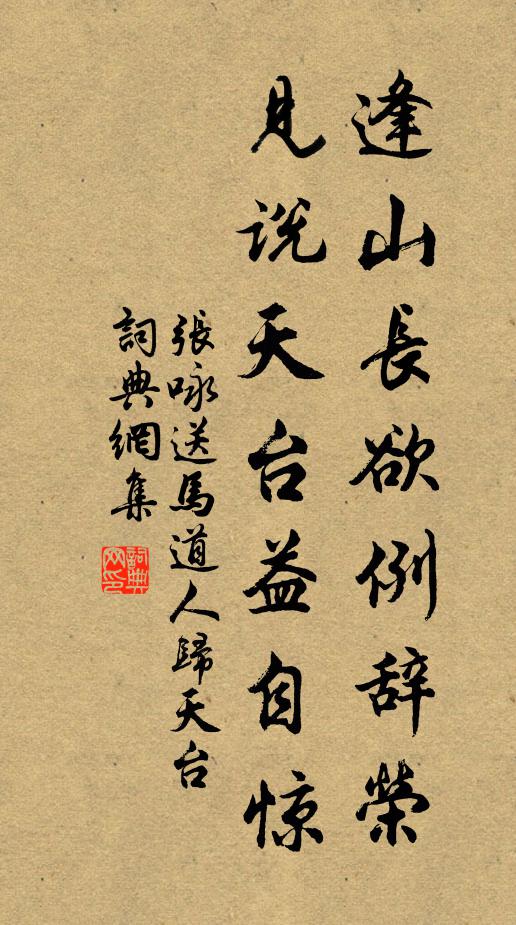 逢山長欲例辞榮
見说天台益自惊
張咏送馬道人歸天台
詞典網集
詞典網印